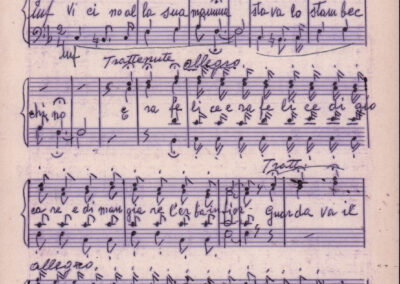 mf Vi ci no al la sua mamma sta va lo stam bec
mf
Trattenuto allegro.
chi no e ra fe li ce e ra fe li ce di gio
Tratt.
ca re e di man gia re l'er ba in fior Guarda va il
allegro.